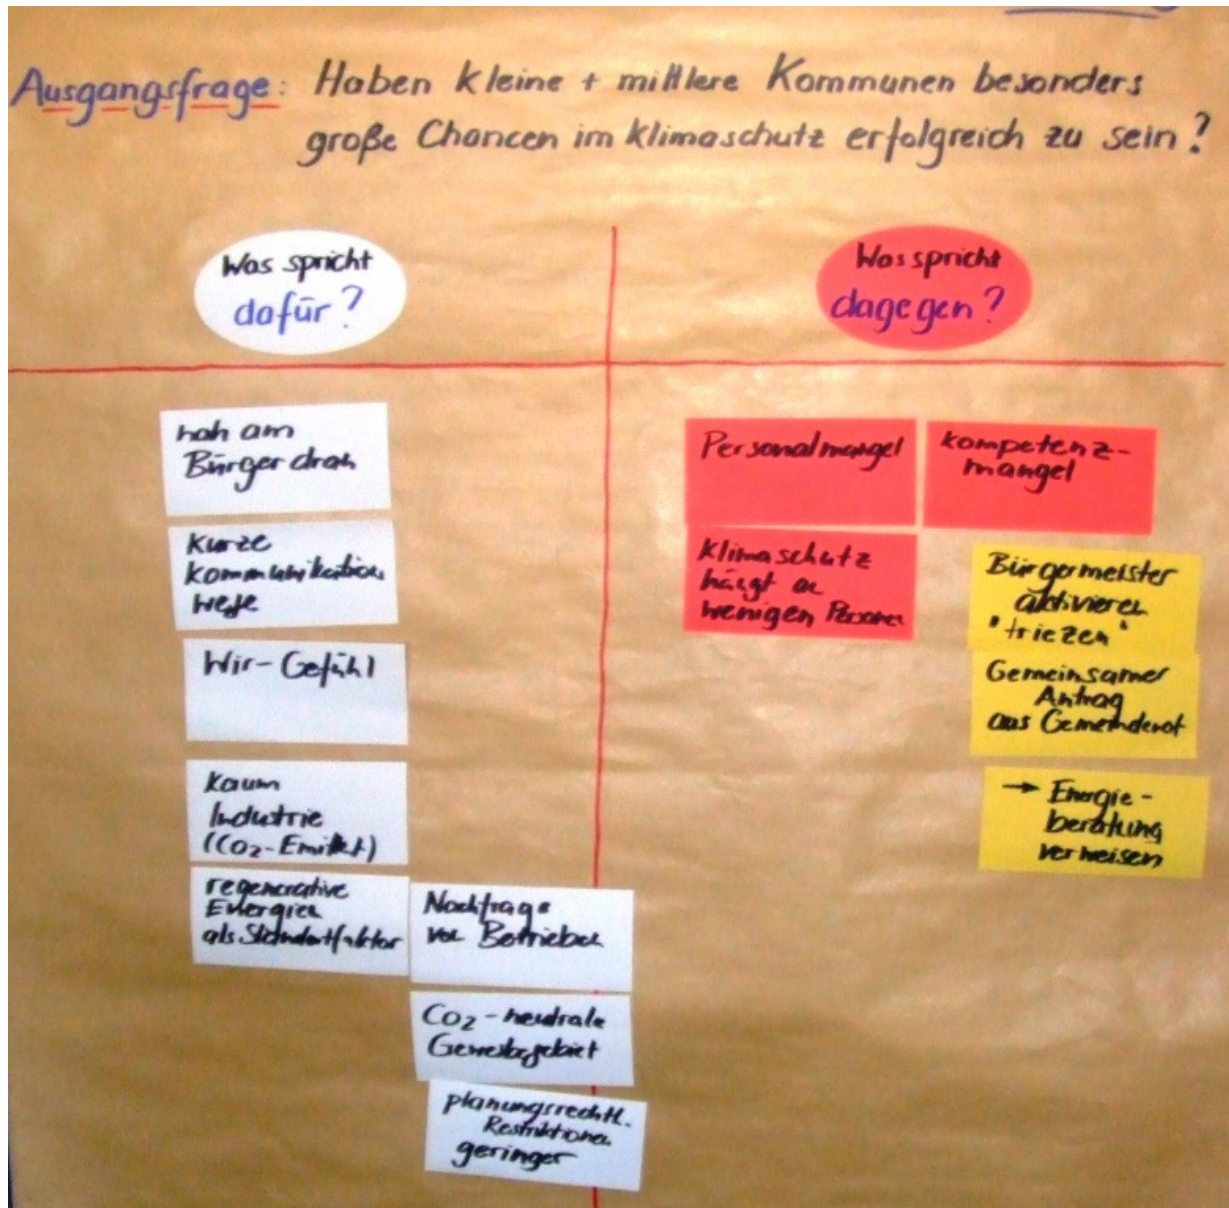 Ausgangsfrage: Haben kleine + mittlere Kommunen besonders
große Chancen im Klimaschutz erfolgreich zu sein?
Was spricht
dafür?
Was spricht
dagegen?
nah am
Bürger dran
kurze
Kommunikations
wege
Wir-Gefühl
kaum
Industrie
(CO₂-Emittent)
regenerative
Energien
als Standortfaktor
Nachfrage
von Betrieben
CO₂-neutrale
Gewerbegebiet
planungsrechtl.
Restriktionen
geringer
Personalmangel
Kompetenz-
mangel
Klimaschutz
hängt an
wenigen Personen
Bürgermeister
aktivieren
"triezen"
Gemeinsamer
Antrag
aus Gemeinderat
→ Energie-
beratung
verweisen